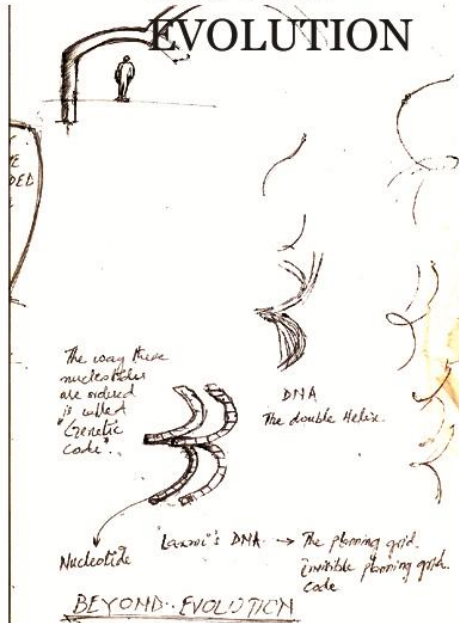 EVOLUTION
E
DED
The way these
nucleotides
are ordered
is called
"Genetic
Code"..
DNA
The double Helix.
Nucleotide
"Laxmi"'s DNA. → The planning grid.
invisible planning grid.
Code
BEYOND..EVOLUTION